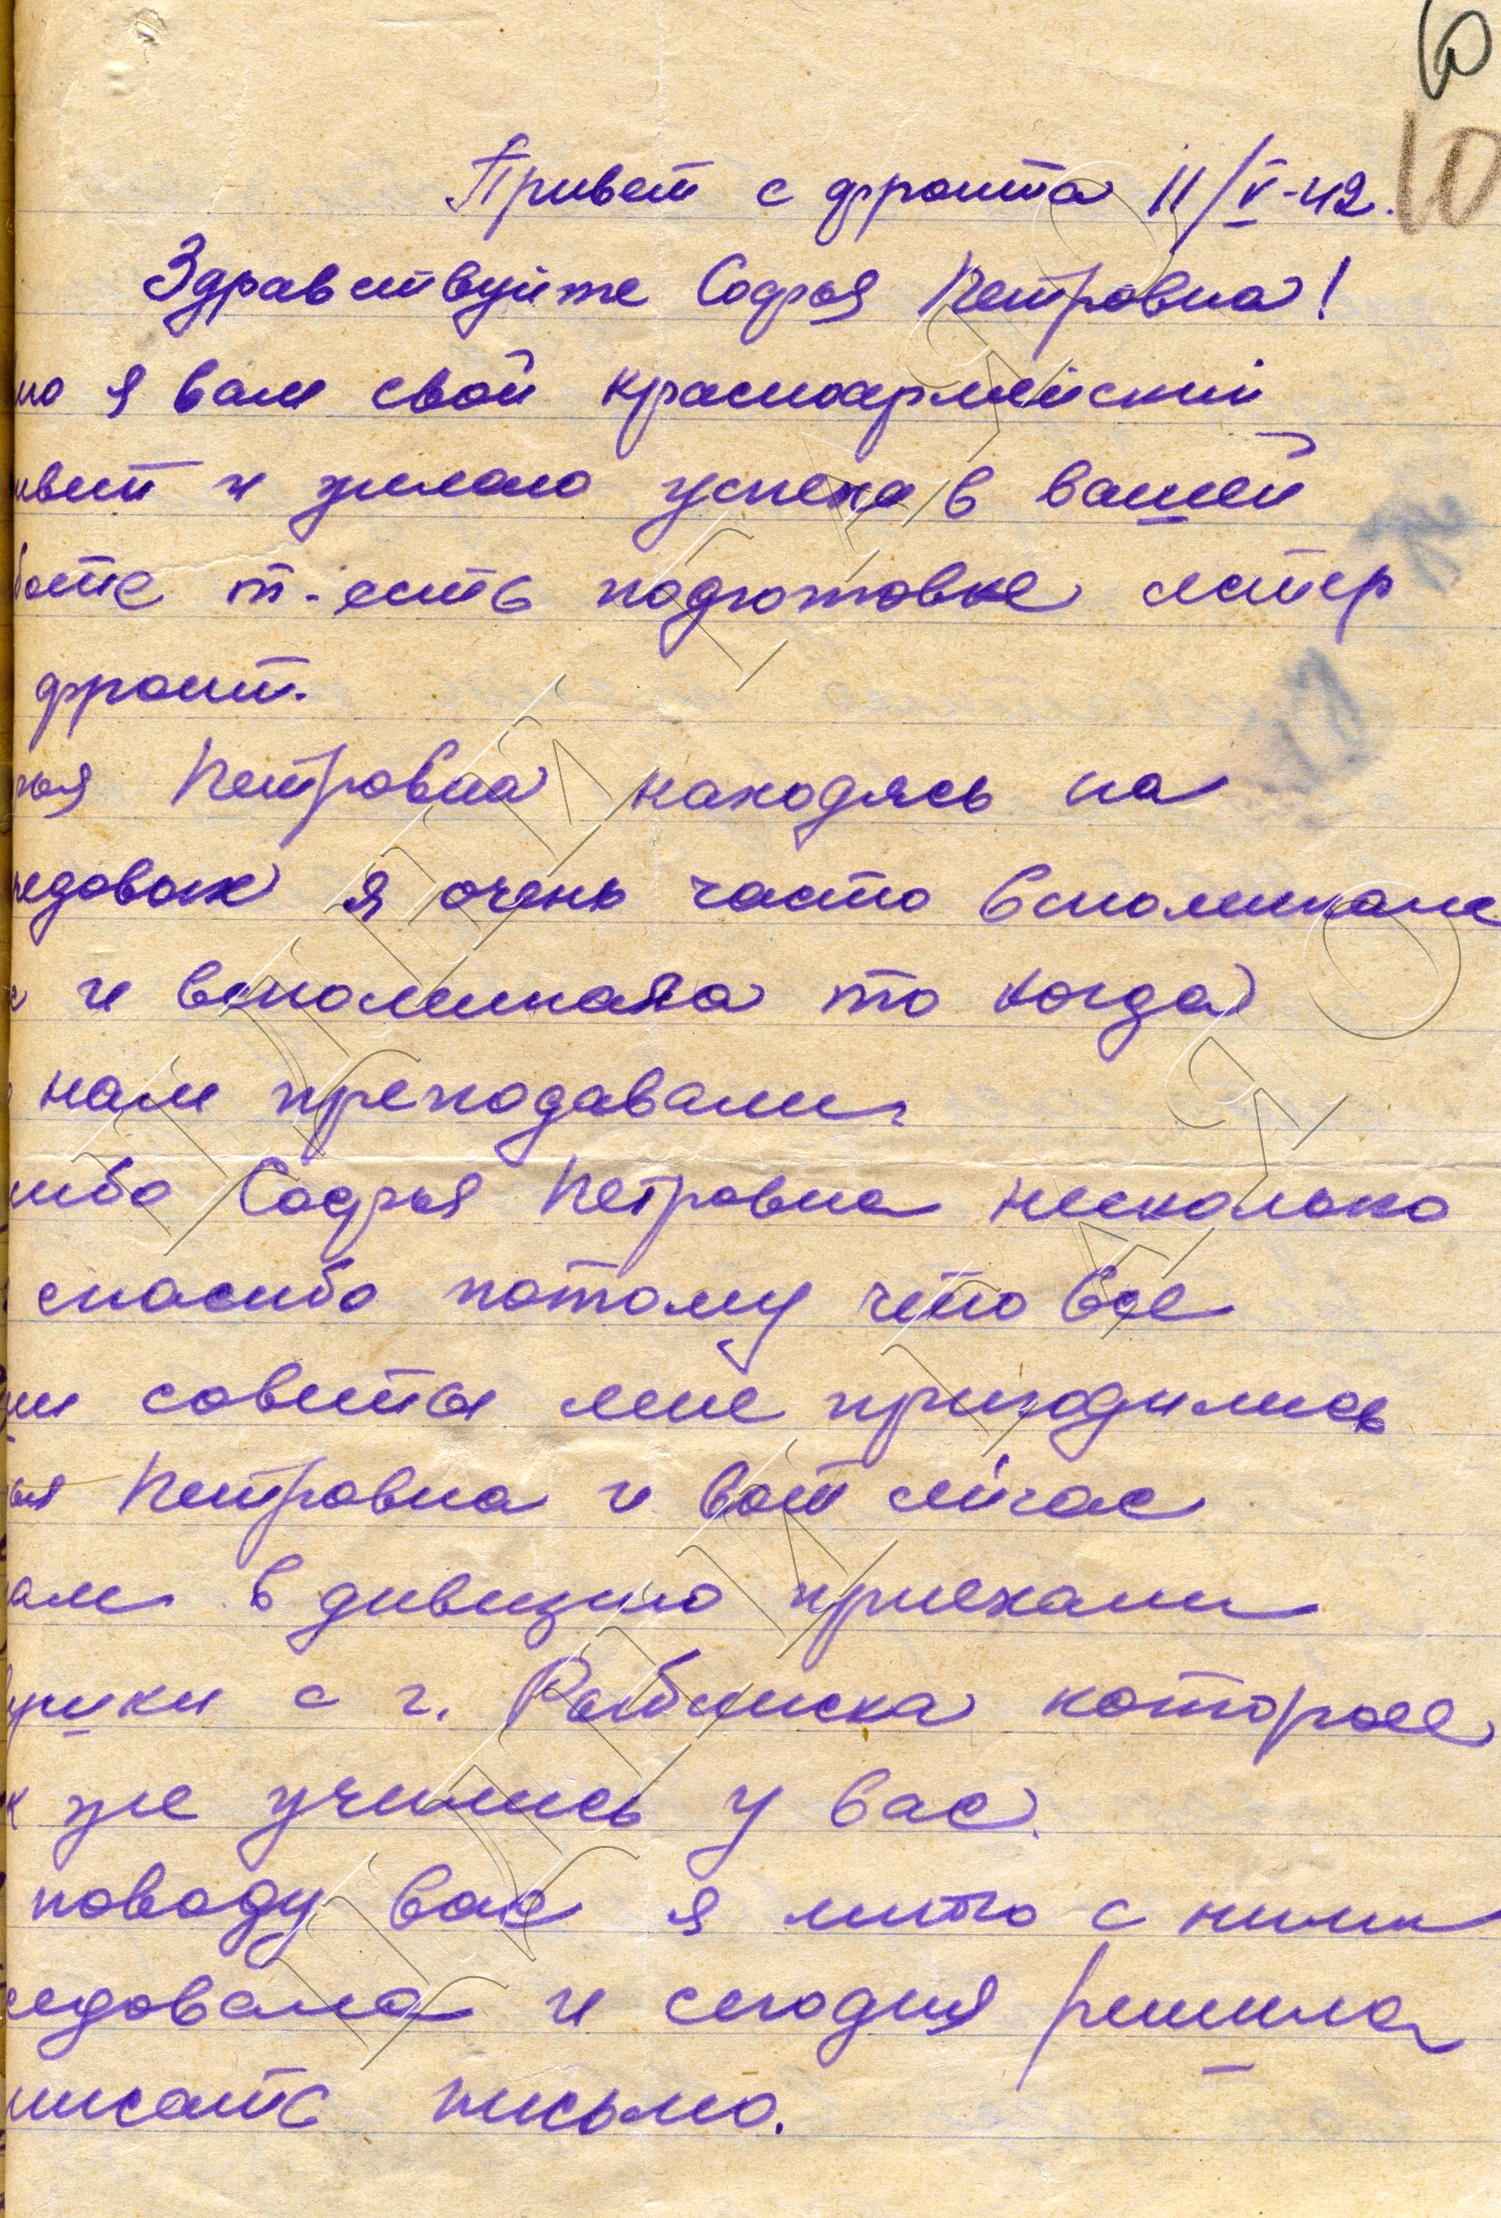 10
10
Привет с фронта 11/V-42.
Здравствуйте Софья Петровна!
лю я вам свой красноармейский
ивет и желаю успеха в вашей
боте т-есть подготовке сестер
фронт.
фья Петровна находясь на
редовых я очень часто вспоминаю
с и вспоминала то когда
нам преподавали.
сибо Софья Петровна несколько
спасибо потому что все
ши советы мне приходились
фья Петровна и вот сейчас
нам в дивизию приехали
вушки с г. Рыбинска которые
к же учились у вас.
поводу вас я много с ними
седовала и сегодня решила
писать письмо.